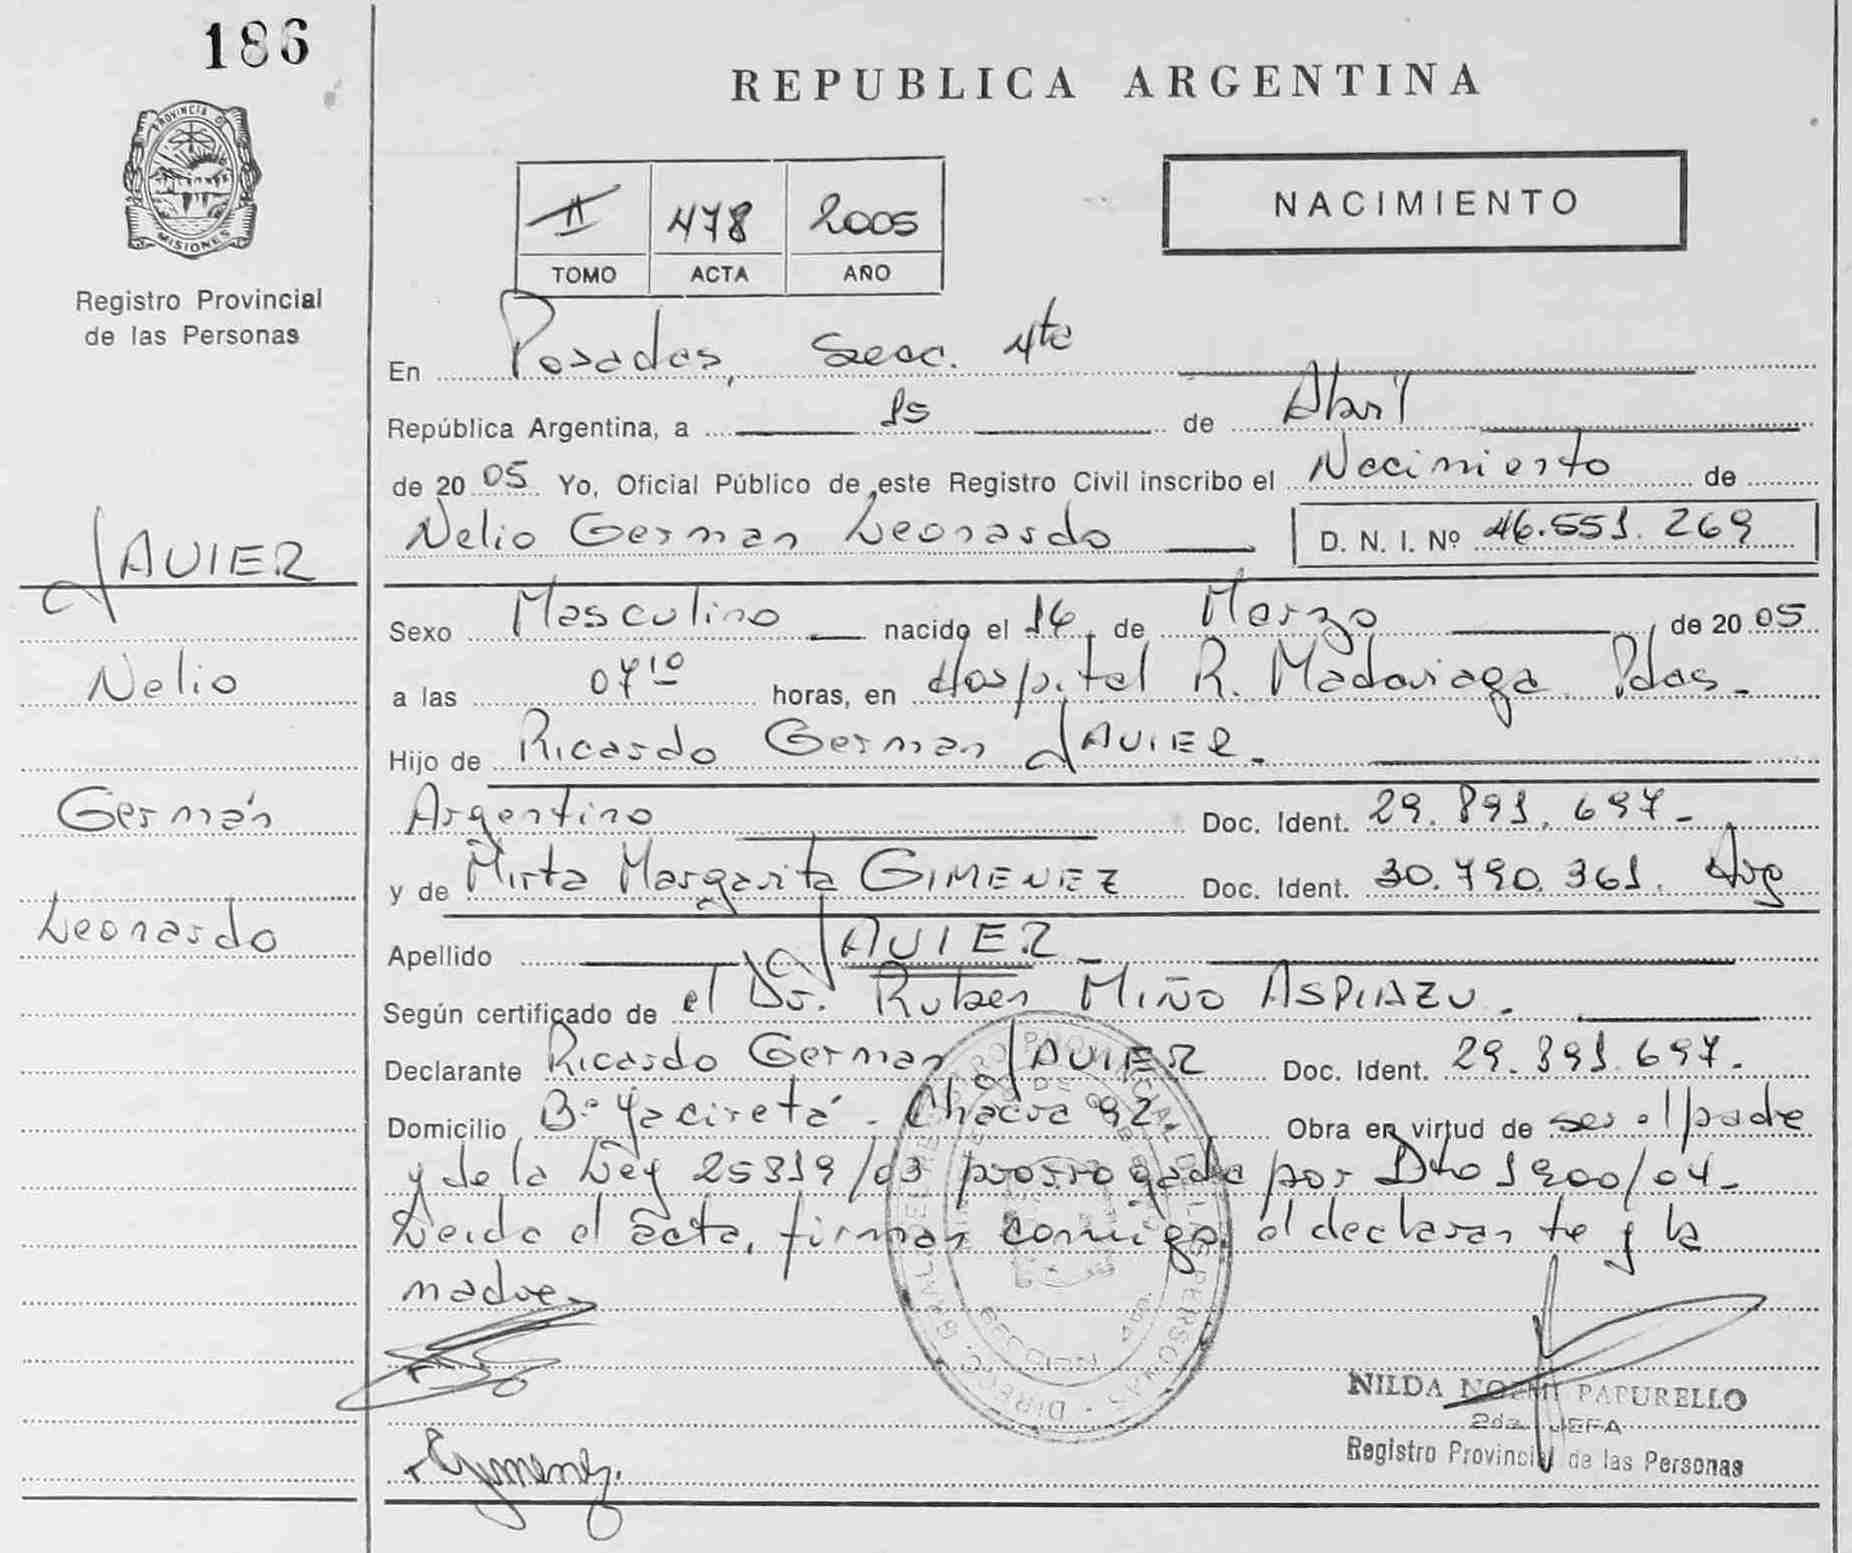 186
REPUBLICA ARGENTINA
PROVINCIA DE
MISIONES
Registro Provincial
de las Personas
II 478 2005
TOMO ACTA AÑO
NACIMIENTO
En Posadas, Secc. 4ta
República Argentina, a 15 de Abril
de 20 05 Yo, Oficial Público de este Registro Civil inscribo el Nacimiento de
Nelio German Leonardo D. N. I. Nº 46.551.269
JAVIER
Nelio
Germán
Leonardo
Sexo Masculino nacido el 14 de Marzo de 20 05
a las 07 10 horas, en Hospital R. Madariaga Pdas.
Hijo de Ricardo German JAVIER.
Argentino Doc. Ident. 29.891.697.-
y de Mirta Margarita GIMENEZ Doc. Ident. 30.790.361. Arg
Apellido JAVIER
Según certificado de el Dr. Ruben MIÑO ASPIAZU.
Declarante Ricardo German JAVIER Doc. Ident. 29.891.697.-
Domicilio Bº Yaciretá - Chacra 92 Obra en virtud de ser el padre
y de la Ley 25819/03 prorrogada por Dto 1900/04.-
Leida el acta, firman conmigo, el declarante y la
madre
NILDA NOEMI PATURELLO
2da. JEFA
Registro Provincial de las Personas
Gimenez.